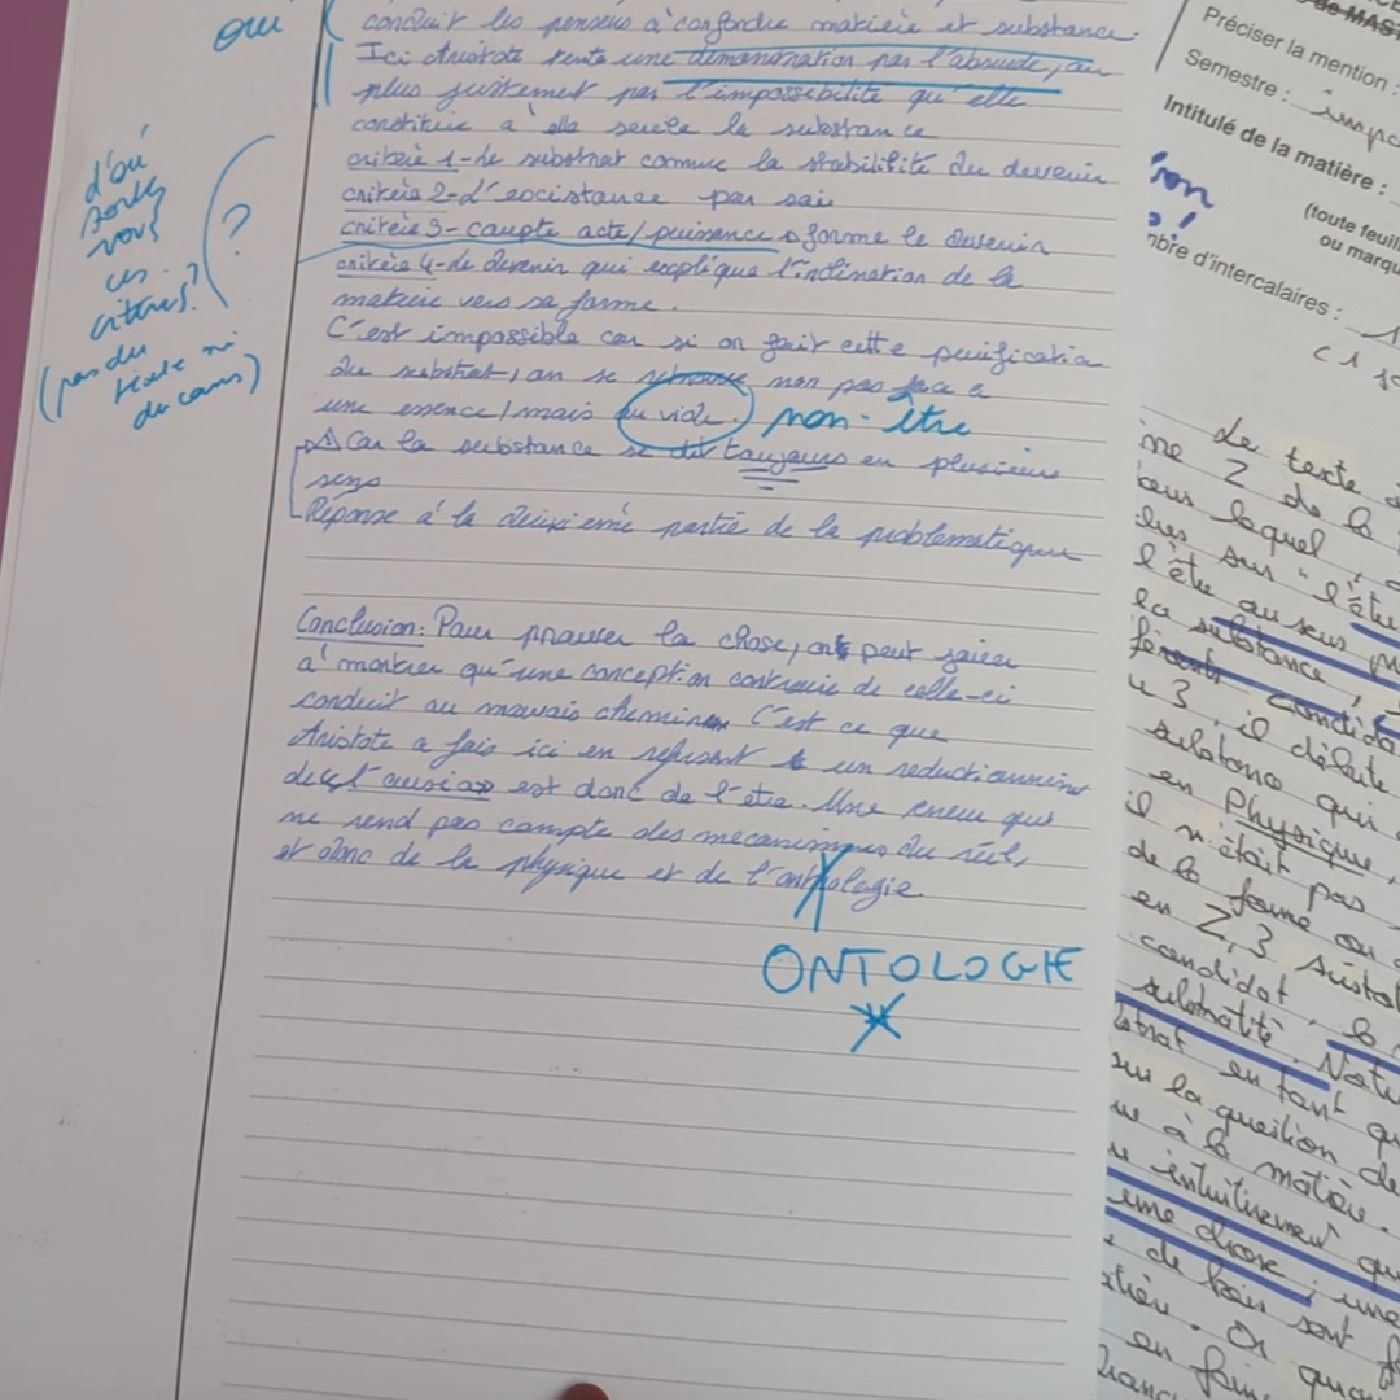 oui
conduit les penseurs à confondre matière et substance.
Ici Aristote tente une démonstration par l'absurde, ou
plus justement par l'impossibilité qu'elle
constitue à elle seule la substance
critère 1- Le substrat comme la stabilité du devenir
critère 2- L'existance par soi
critère 3- couple acte/puissance forme le devenir
critère 4- Le devenir qui explique l'inclination de la
matière vers sa forme.
d'où
sortez
vous
ces
critères?
(pas du
texte ni
du cours)
?
C'est impossible car si on fait cette purification
du substrat, on se retrouve non pas face a
une essence, mais au vide. non-être
Car la substance se dit toujours en plusieurs
sens
Réponse à la deuxième partie de la problématique
Conclusion: Pour prouver la chose, on peut
à montrer qu'une conception contraire de celle-ci
conduit au mauvais chemin. C'est ce que
Aristote a fais ici en refusant un reductionnisme
de « l'ousia » est donc de l'être. Une erreur qui
ne rend pas compte des mécanismes du réel,
et donc de la physique et de l'anthologie.
ONTOLOGIE
de MAS
Préciser la mention :
Semestre : impa
Intitulé de la matière :
(toute feuil
ou marqu
mbre d'intercalaires : 1
Le texte
Z de la
lequel,
sur "l'être
l'être au sens
la substance,
candida
3, il débute
qui
en Physique,
il n'était pas
de la forme ou
en Z, 3 Aristo
candidat, la
substratité. Natu
en tant qu
sur la question de
à la matière.
intuitivement qu
une chose, une
de bois sont
. Or qua
en fain